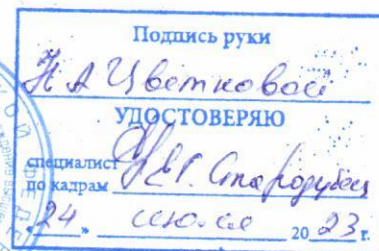 Подпись руки
Н А Цветковой
УДОСТОВЕРЯЮ
специалист
по кадрам Е.Г. Стародубец
"24" июля 2023 г.